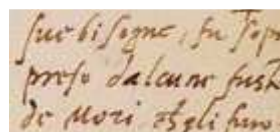 sue bisogne, fu sopr
preso dalcune fust
de Mori, et gli furo